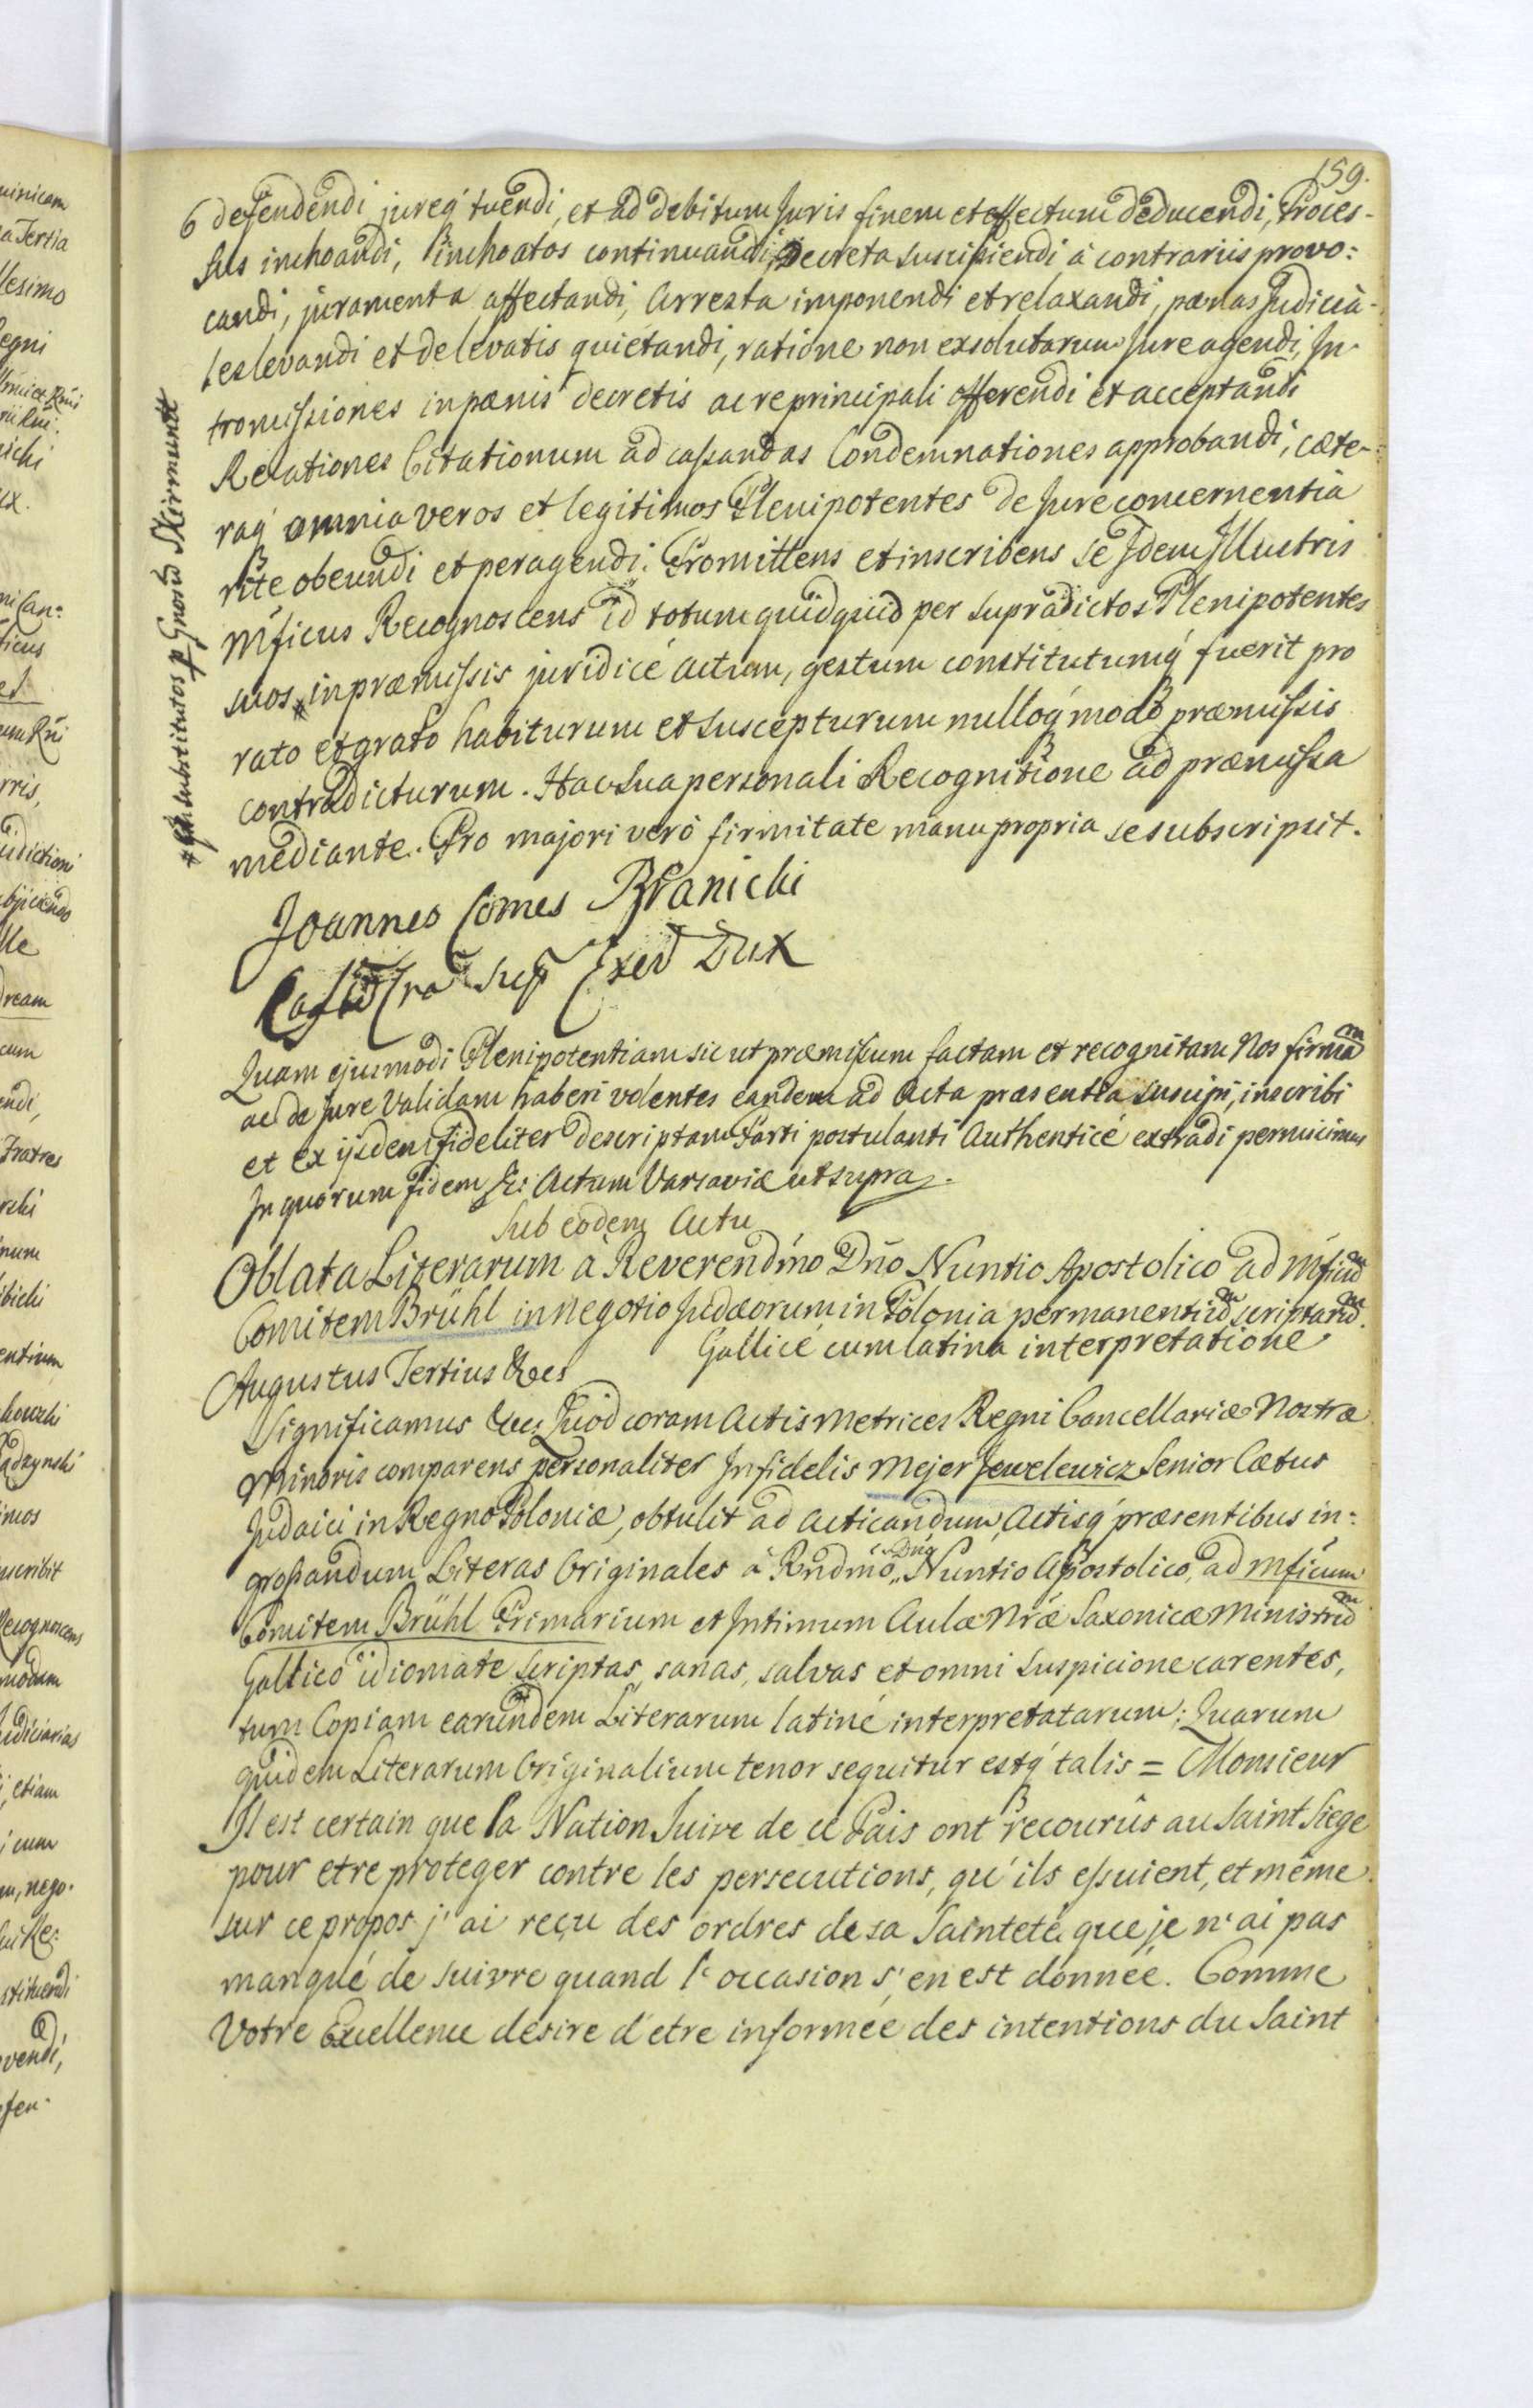 159.
6 defendendi jureq́ tuendi, et ad debitum Juris finem et effectum deducendi, Proces-
sus inchoandi, inchoatos continuandi, Decreta suscipiendi à contrariis provo:
candi, juramenta affectandi, Arresta imponendi et relaxandi, pænas Judicia-
les levandi et de levatis quietandi, ratione non exsolutarum Jure agendi, In-
tromissiones in pænis decretis ac re principali offerendi et acceptandi
Relationes Citationum ad cassandas Condemnationes approbandi, cæte-
raq́ omnia veros et legitimos Plenipotentes de Jure concernentia
rite obeundi et peragendi. Promittens et inscribens se Idem Illustris
Mficus Recognoscens id totum quidquid per supradictos Plenipotentes
suos * in præmissis juridicè actum, gestum constitutumq́ fuerit pro
rato et grato habiturum et suscepturum nulloq́ modo præmissis
contradicturum. Hac sua personali Recognitione ad præmissa
mediante. Pro majori verò firmitate manu propria se subscripsit.
substitutos p Gnosū Skirmuntt
Joannes Comes Branicki
Quam ejusmodi Plenipotentiam sic ut præmissum factam et recognitam Nos firmam
ac de Jure validam haberi volentes eandem ad Acta præsentia suscipi, inscribi
et ex ijsdem fideliter descriptam Parti postulanti Authenticè extradi permisimus
In quorum fidem &c: Actum Varsaviæ ut supra.
Sub eodem Actu
Oblata Literarum à Reverendm̄o Dn̄o Nuntio Apostolico ad Mficum
Comitem Brühl in negotio Judæorum in Polonia permanentium scriptarum.
Gallicè cum latina interpretatione
Augustus Tertius &ces
Significamus &ces Quod coram Actis Metrices Regni Cancellariæ Nostræ
Minoris comparens personaliter Infidelis Mejer Jewelewicz Senior Cœtus
Judaici in Regno Poloniæ, obtulit ad acticandum, Actisq́ præsentibus in:
grossandum Literas Originales à Rndmo Dno Nuntio Apostolico, ad Mficum
Comitem Brühl Primarium et Intimum Aulæ Nrǣ Saxonicæ Ministrum
Gallico idiomate scriptas, sanas, salvas et omni suspicione carentes,
tum Copiam earundem Literarum latinè interpretatarum; Quarum
quidem Literarum Originalium tenor sequitur estq́ talis = Monsieur
Il est certain que la Nation Juive de ce Païs ont recourûs au Saint Siege
pour etre proteger contre les persecutions, qu'ils essuient, et même
sur ce propos j'ai reçu des ordres de sa Sainteté que je n'ai pas
manqué de suivre quand l'occasion s'en est donnée. Comme
Votre Excellence desire d'etre informée des intentions du Saint